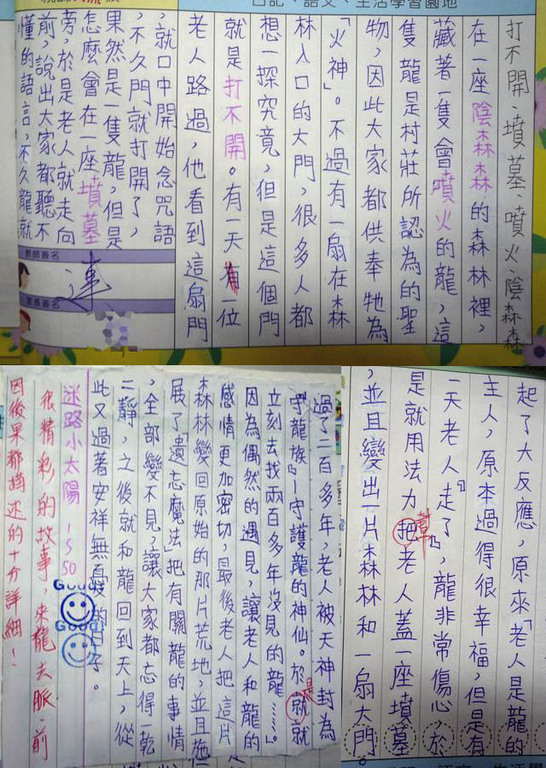 打不開、墳墓、噴火、陰森森
在一座陰森森的森林裡，
藏著一隻會噴火的龍，這
隻龍是村莊所認為的聖
物，因此大家都供奉牠為
「火神」。不過有一扇在森
林入口的大門，很多人都
想一探究竟，但是這個門
就是打不開。有一天有一位
老人路過，他看到這扇門
，就口中開始念咒語
，不久門就打開了，
果然是一隻龍，但是
怎麼會在一座墳墓
旁，於是老人就走向
前，說出大家都聽不
懂的語言，不久龍就
教師簽名
家長簽名
起了大反應，原來「老人是龍的
主人，原本過得很幸福，但是有
一天老人走了」，龍非常傷心，於
是就用法力把老人蓋一座墳墓
幫
，並且變出一片森林和一扇大門。
過了二百多年，老人被天神封為
「守龍族」—守護龍的神仙。於就就
是
立刻去找兩百多年沒見的龍……。
因為偶然的遇見，讓老人和龍的
感情更加密切，最後老人把這片
森林變回原始的那片荒地，並且施
展了「遺忘魔法」把有關龍的事情
，全部變不見，讓大家都忘得一乾
二靜，之後就和龍回到天上，從
此又過著安祥無憂的日子。
迷路小太陽！550
Good!
Good!
很精彩的故事，來龍去脈、前
因後果都描述的十分詳細！